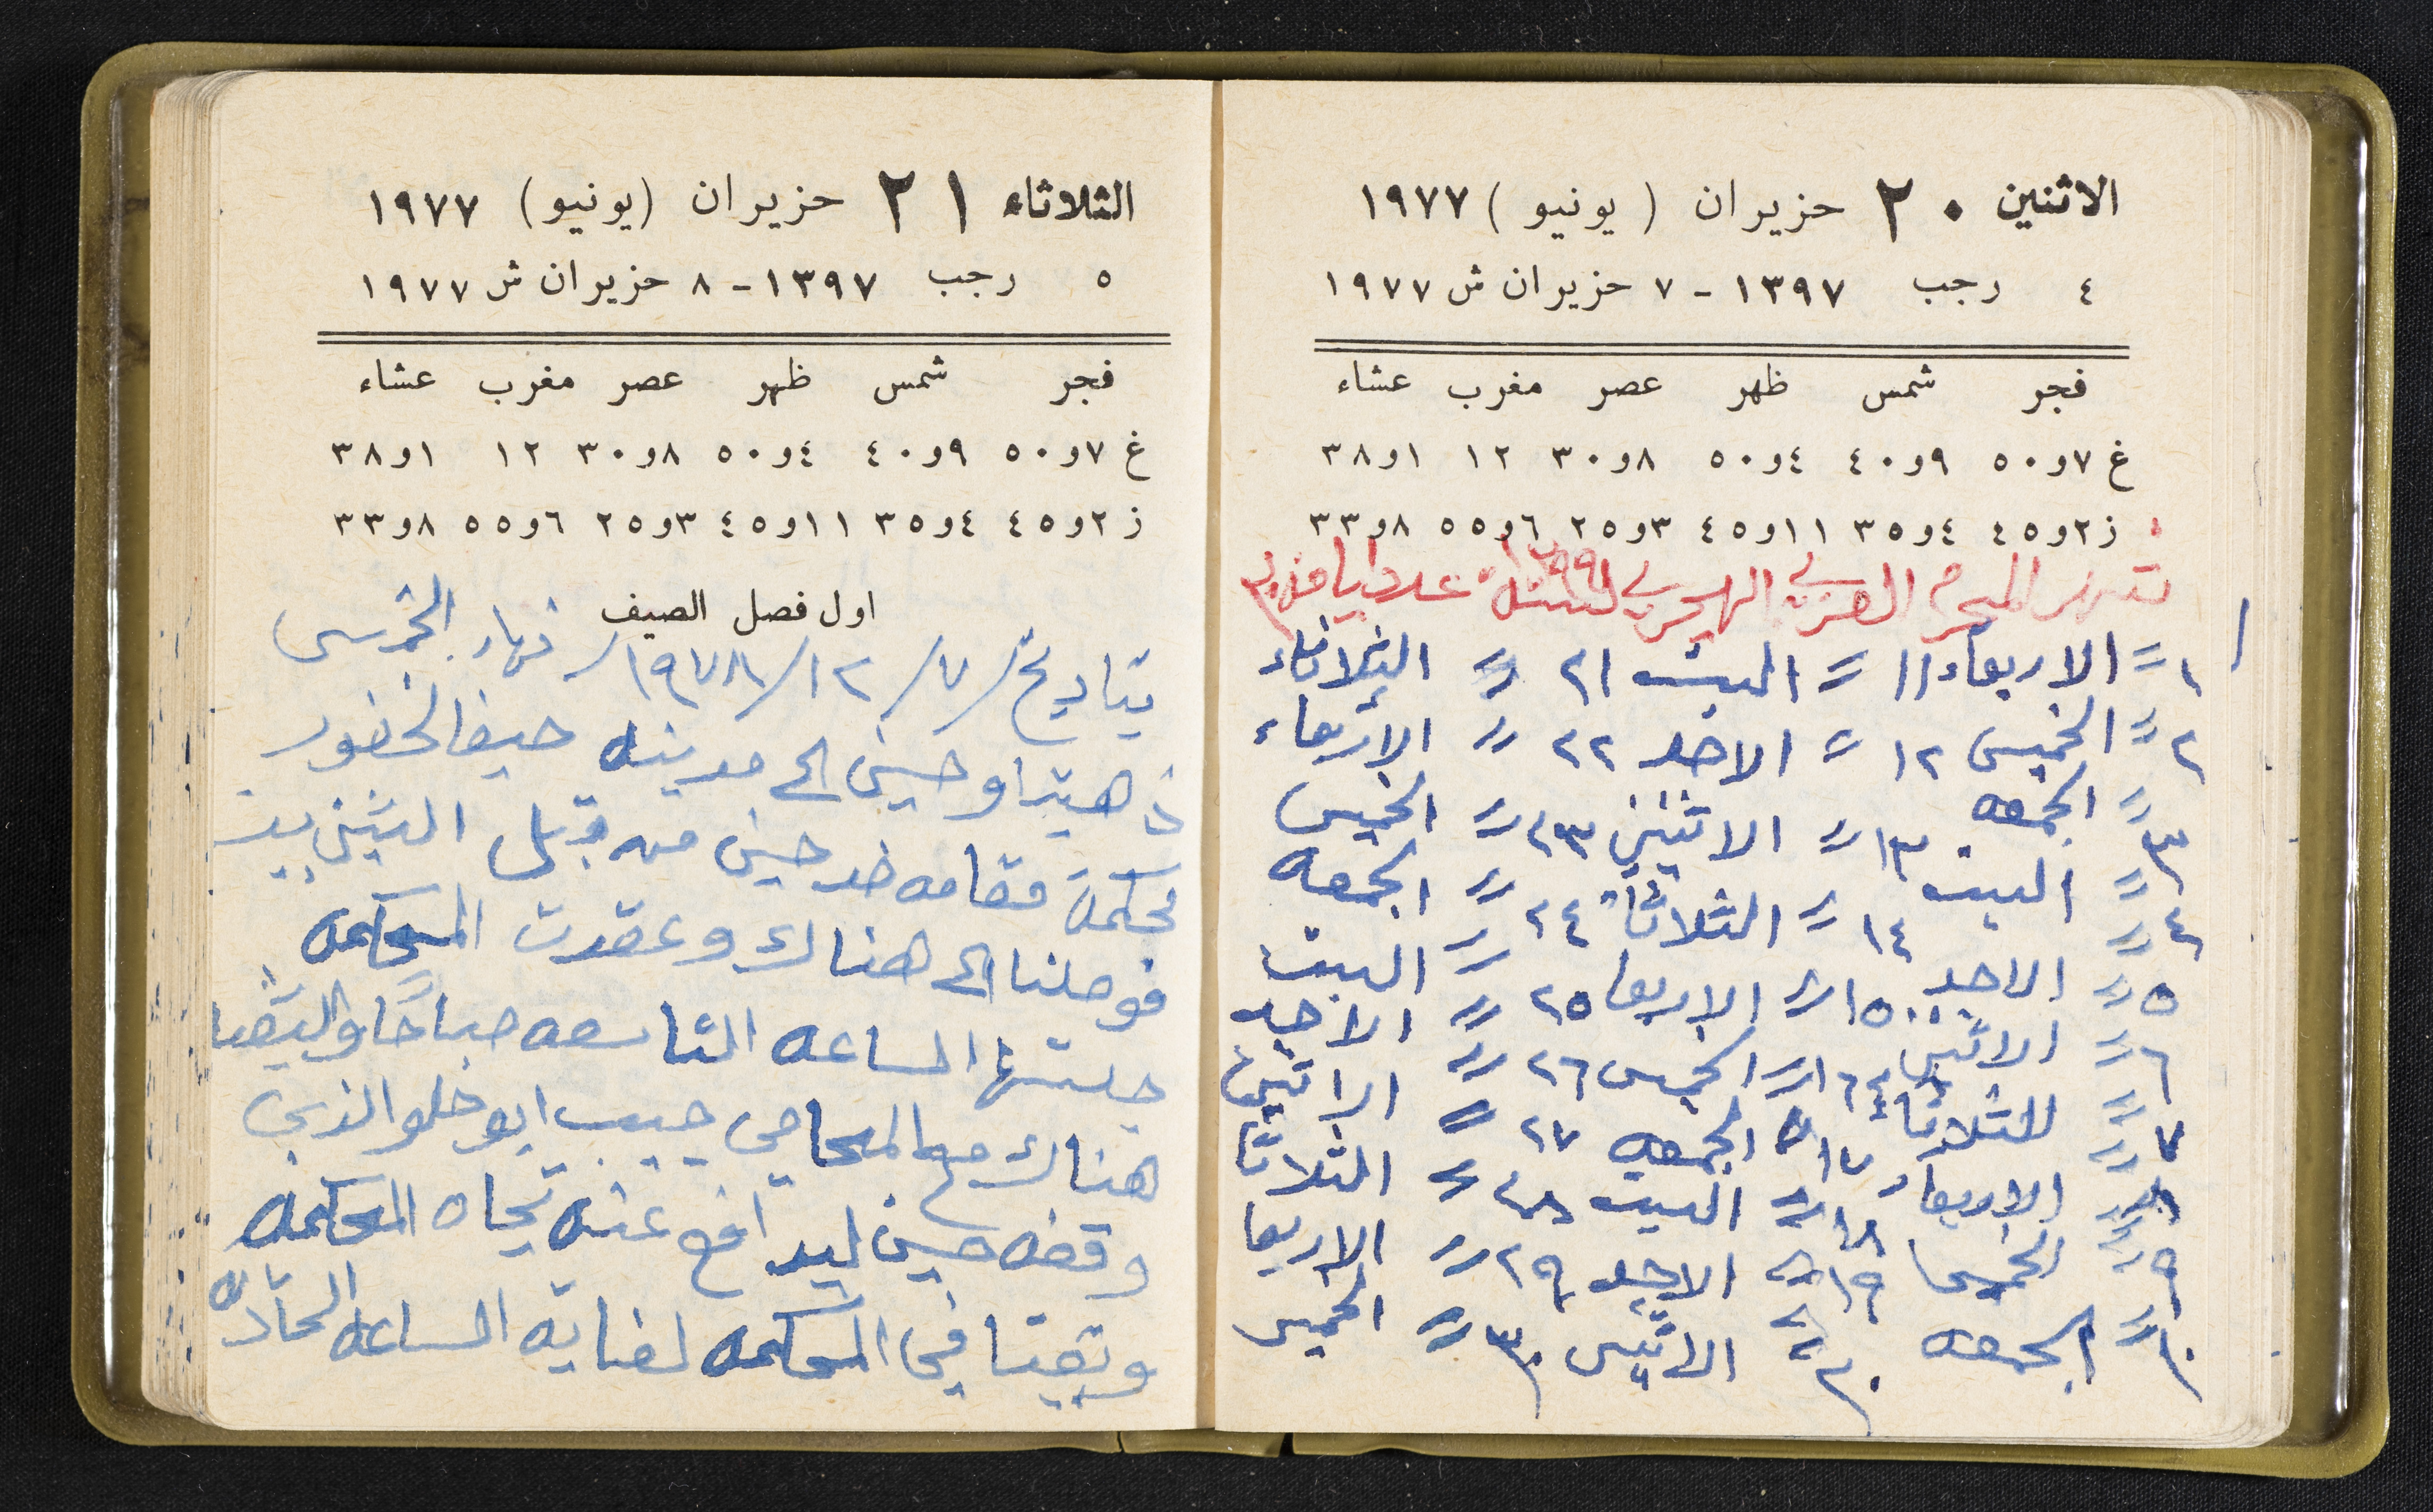 الاثنين ٢٠ حزيران (يونيو) ١٩٧٧
٤ رجب ١٣٩٧ - ٧ حزيران ش ١٩٧٧
فجر شمس ظهر عصر مغرب عشاء
غ ٧و٥٠ ٩و٤٠ ٤و٥٠ ٨و٣٠ ١٢ ١و٣٨
ز ٢و٤٥ ٤و٣٥ ١١و٤٥ ٣و٢٥ ٦و٥٥ ٨و٣٣
المحرم العربي الهجري لسنة ١٣٩٩ عدد ايامه ٣٠
١ = الاربعاء ١١ = السبت ٢١ = الثلاثاء
٢ = الخميس ١٢ = الاحد ٢٢ = الاربعاء
٣ = الجمعه ١٣ = الاثنين ٢٣ = الخميس
٤ = السبت ١٤ = الثلاثاء ٢٤ = الجمعه
٥ = الاحد ١٥ = الاربعا ٢٥ = السبت
٦ = الاثنين ١٦ = الخميس ٢٦ = الاحد
٧ = الثلاثاء ١٧ = الجمعه ٢٧ = الاثنين
٨ = الاربعاء ١٨ = السبت ٢٨ = الثلاثا
٩ = الخميس ١٩ = الاحد ٢٩ = الاربعا
١٠ = الجمعه ٢٠ = الاثنين ٣٠ = الخميس
الثلاثاء ٢١ حزيران (يونيو) ١٩٧٧
٥ رجب ١٣٩٧ - ٨ حزيران ش ١٩٧٧
فجر شمس ظهر عصر مغرب عشاء
غ ٧و٥٠ ٩و٤٠ ٤و٥٠ ٨و٣٠ ١٢ ١و٣٨
ز ٢و٤٥ ٤و٣٥ ١١و٤٥ ٣و٢٥ ٦و٥٥ ٨و٣٣
اول فصل الصيف
بتاريخ /٧/١٢/١٩٧٨/ نهار الخميس
ذهبت انا وحسين الى مدينه حيفا لحضور
محكمة مقامه ضد حسين من قبل
فوصلنا الى هناك وعقدت المحكمه
جلستها الساعه التاسعه صباحًا والتقينا
هناك مع المحامي حبيب ابو حلو الذي
وقفه حسين ليدافع عنه تجاه المحكمه
وبقينا في المحكمه لغاية الساعه الحاديه